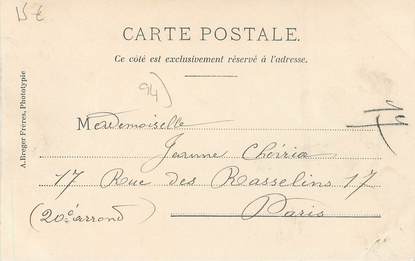 15€
CARTE POSTALE.
Ce côté est exclusivement réservé à l'adresse.
94)
Mademoiselle
Jeanne
17 Rue des Rasselins 17
(20e arrond)
Paris
A. Breger Frères, Phototypie